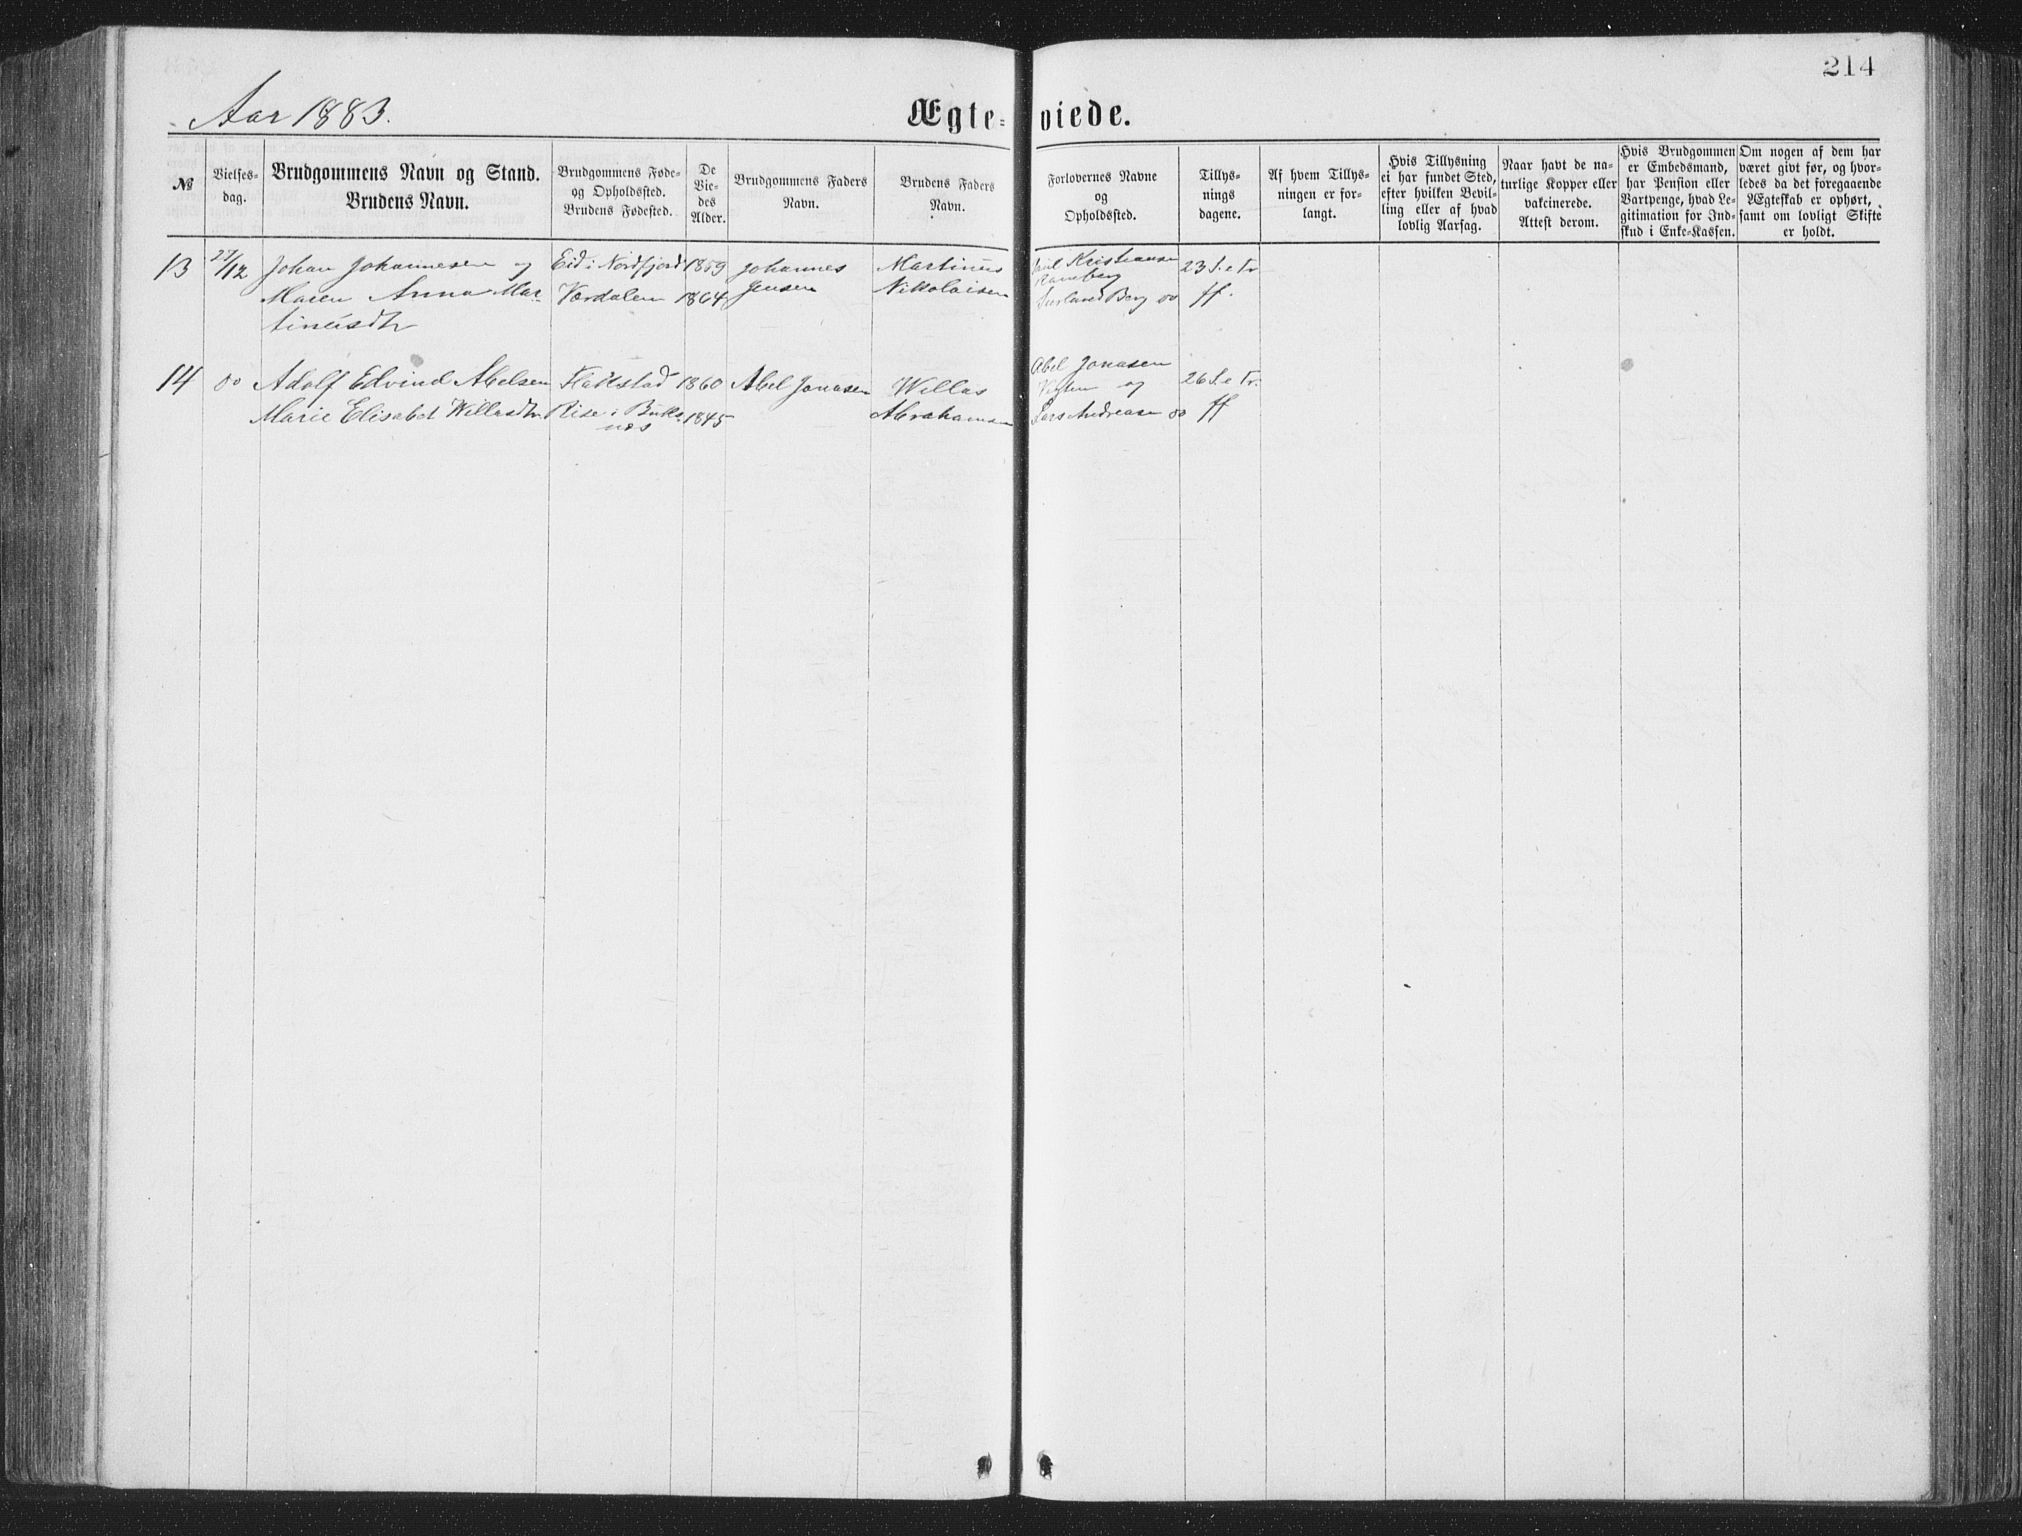 214
Aar 1883.
Ægte-
viede.
№
Vielses-
dag.
Brudgommens Navn og Stand.
Brudens Navn.
Brudgommens Føde-
og Opholdssted.
Brudens Fødested.
De
Vie-
des
Alder.
Brudgommens Faders
Navn.
Brudens Faders
Navn.
Forlovernes Navne
og
Opholdssted.
Tillys-
nings
dagene.
Af hvem Tillys-
ningen er for-
langt.
Hvis Tillysning
ei har fundet Sted,
efter hvilken Bevil-
ling eller af hvad
lovlig Aarsag.
Naar havt de na-
turlige Kopper eller
vakcinerede.
Attest derom.
Hvis Brudgommen
er Embedsmand,
har Pension eller
Vartpenge, hvad Le-
gitimation for Ind-
skud i Enke-Kassen.
Om nogen af dem har
været givt før, og hvor-
ledes da det foregaaende
Ægteskab er ophørt,
samt om lovligt Skifte
er holdt.
13
27/12
Johan Johannesen og
Maren Anna Mar-
tinusdtr
Eid i Nordfjord
Værdalen
1859
1864
Johannes
Jensen
Martinus
Nikolaisen
Kristiansen
Ramberg
Berg do
23 S. e Tr.
ff.
14
do
Adolf Edvind Abelsen
Marie Elisabet Willasdtr.
Flakstad
Rise i Buks-
nes
1860
1845
Abel Jonasen
Willas
Abrahamsen
Abel Jonasen
og
Lars Andreasen do
26 S. e Tr.
ff